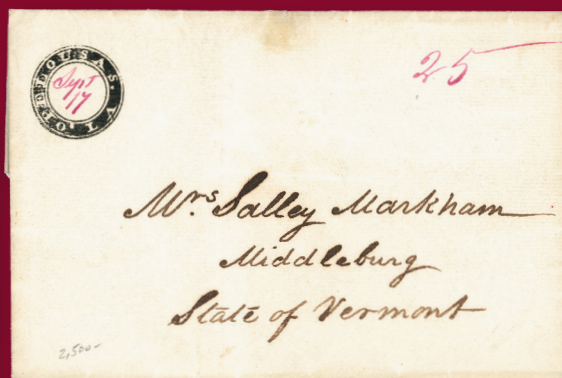 Sept
17
25
Mrs. Salley Markham
Middleburg
State of Vermont
2,500-